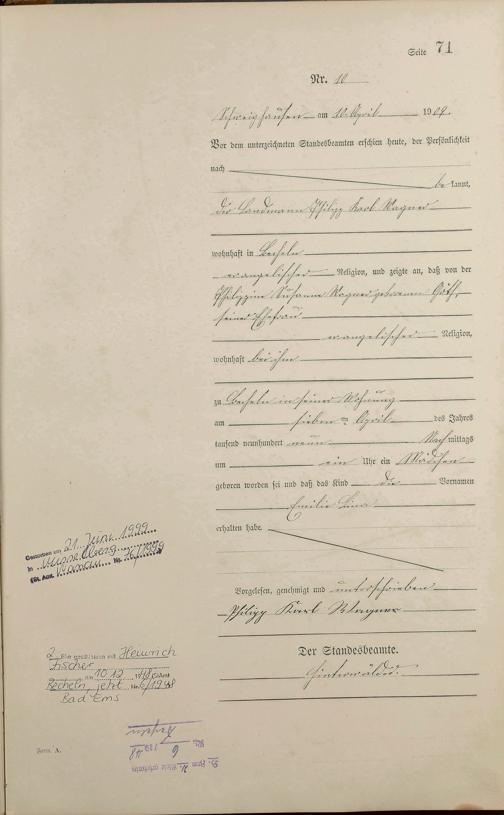 Seite 71
Nr. 10
Schweighausen am 10. April 1909.
Vor dem unterzeichneten Standesbeamten erschien heute, der Persönlichkeit
nach
be kannt,
der Landmann Philipp Karl Wagner
wohnhaft in Becheln
evangelischer Religion, und zeigte an, daß von der
Philippine Susanna Wagner geborenen Göth,
seiner Ehefrau
evangelischer Religion,
wohnhaft bei ihm
zu Becheln in seiner Wohnung
am sieben April des Jahres
tausend neunhundert neun Nachmittags
um ein Uhr ein Mädchen
geboren worden sei und daß das Kind die Vornamen
Emilie Lina
erhalten habe.
Vorgelesen, genehmigt und unterschrieben
Philipp Karl Wagner
Der Standesbeamte.
Hinterwälder.
Gestorben am 21. Juni 1999
in
Nr. 767/1999
2. Eheschließung mit Heinrich
Fischer
am 10.12.1948
Becheln, jetzt Nr. 6/1948
Bad Ems
Nr. 6 1948
Becheln
Form. A.